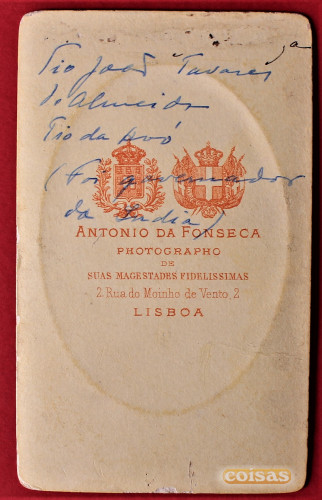 Tio João Tavares
d'Almeida
Tio da Avó
(Foi governador
da India)
ANTONIO DA FONSECA
PHOTOGRAPHO
DE
SUAS MAGESTADES FIDELISSIMAS
2 Rua do Moinho de Vento, 2
LISBOA
coisas